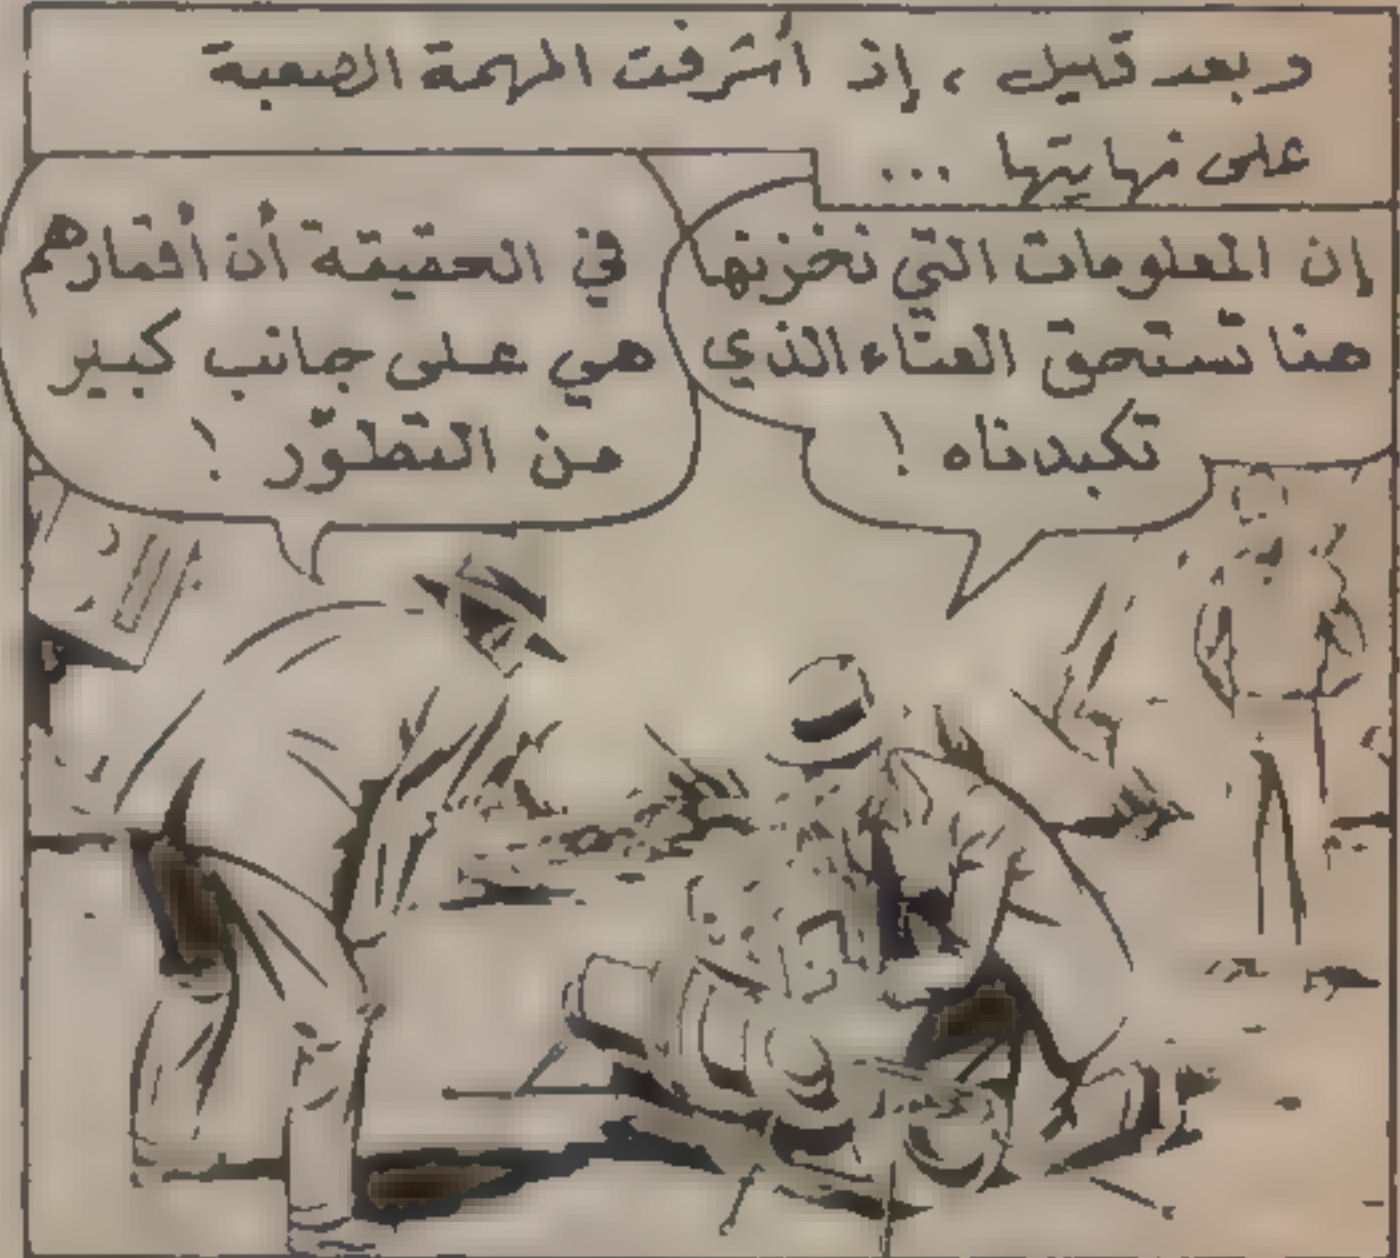 وبعد قليل ، إذ أشرفت المهمة الصعبة
على نهايتها ...
إن المعلومات التي نخزنها
هنا تستحق العناء الذي
تكبدناه !
في الحقيقة أن أقمارهم
هي على جانب كبير
من التطوّر !